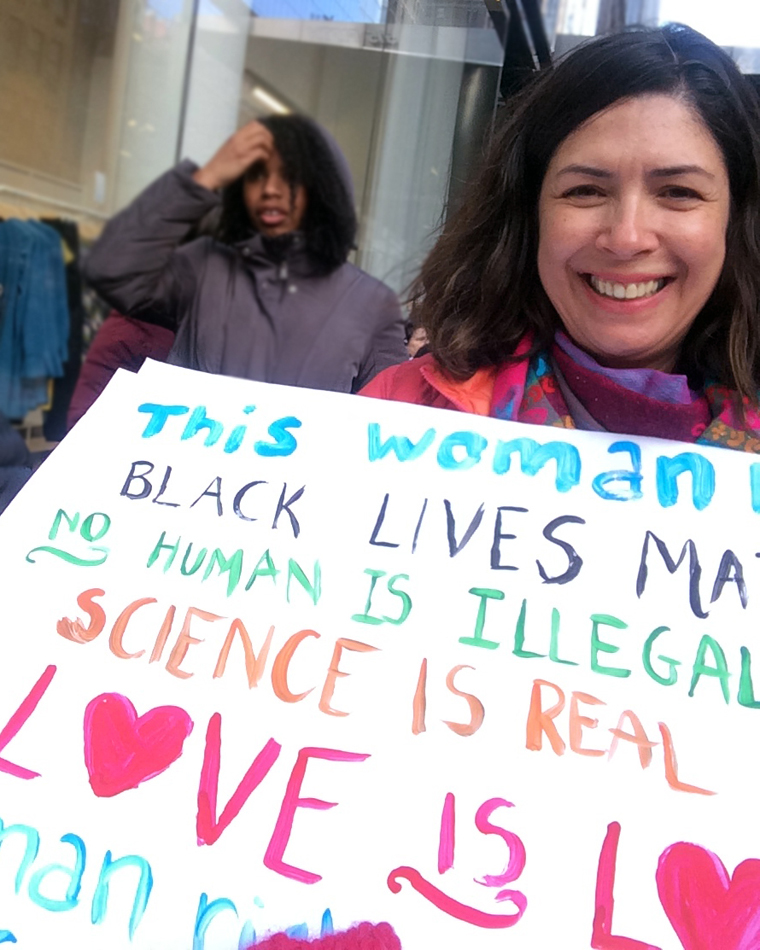 This woman
BLACK LIVES MAT
NO HUMAN IS ILLEGAL
SCIENCE IS REAL
LOVE IS LO
man rig